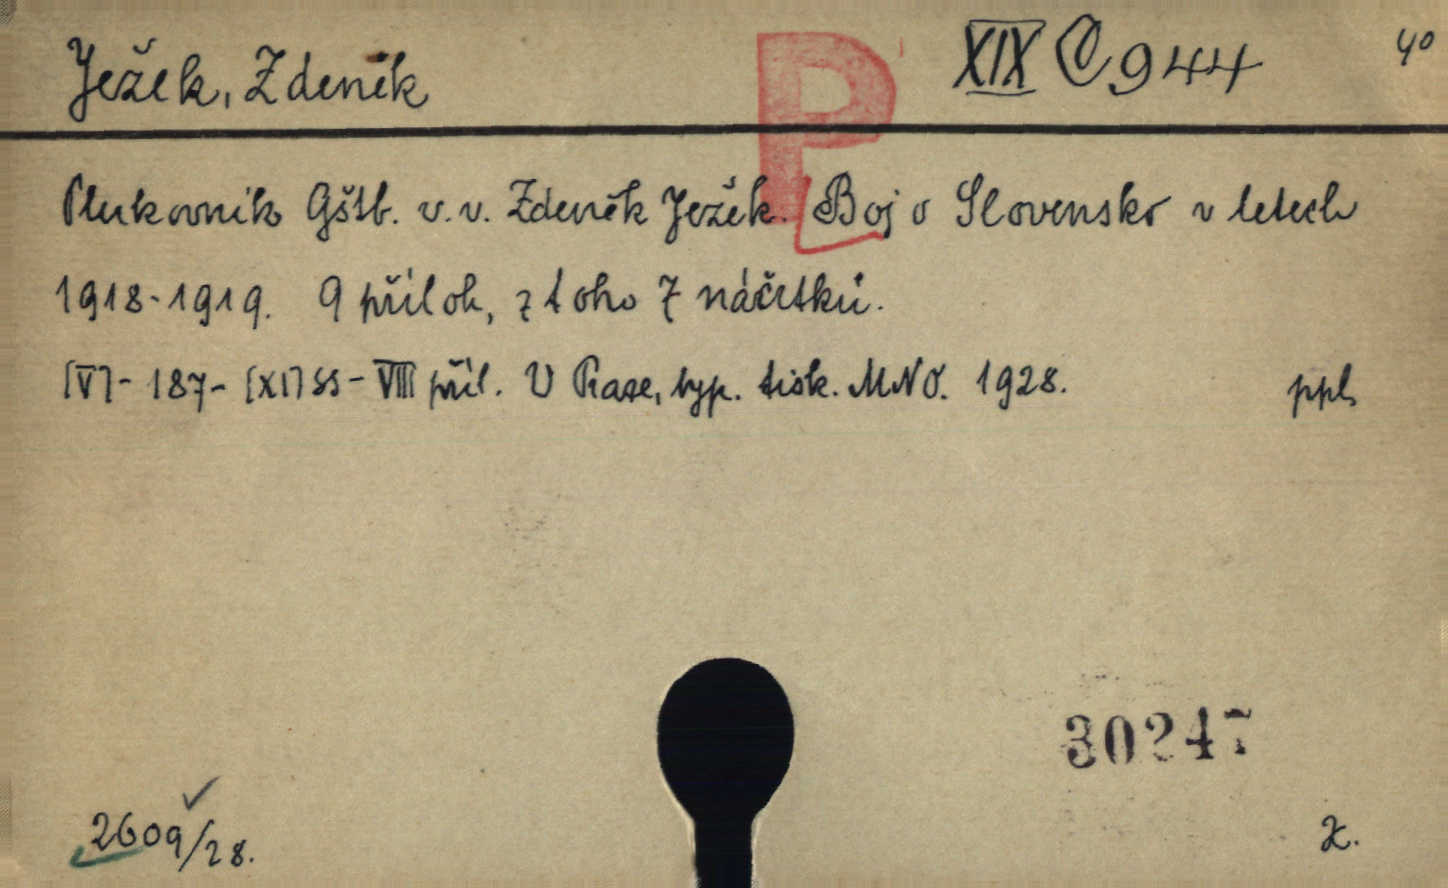 Ježek, Zdeněk
P
XIX C 944
4°
Plukovník Gštb. v.v. Zdeněk Ježek. Boj o Slovensko v letech
1918-1919. 9 příloh, z toho 7 náčrtků.
[V]- 187- [XI] SS - VIII příl. V Praze, typ. tisk. MNO. 1928.
ppl.
30247
2609/28.